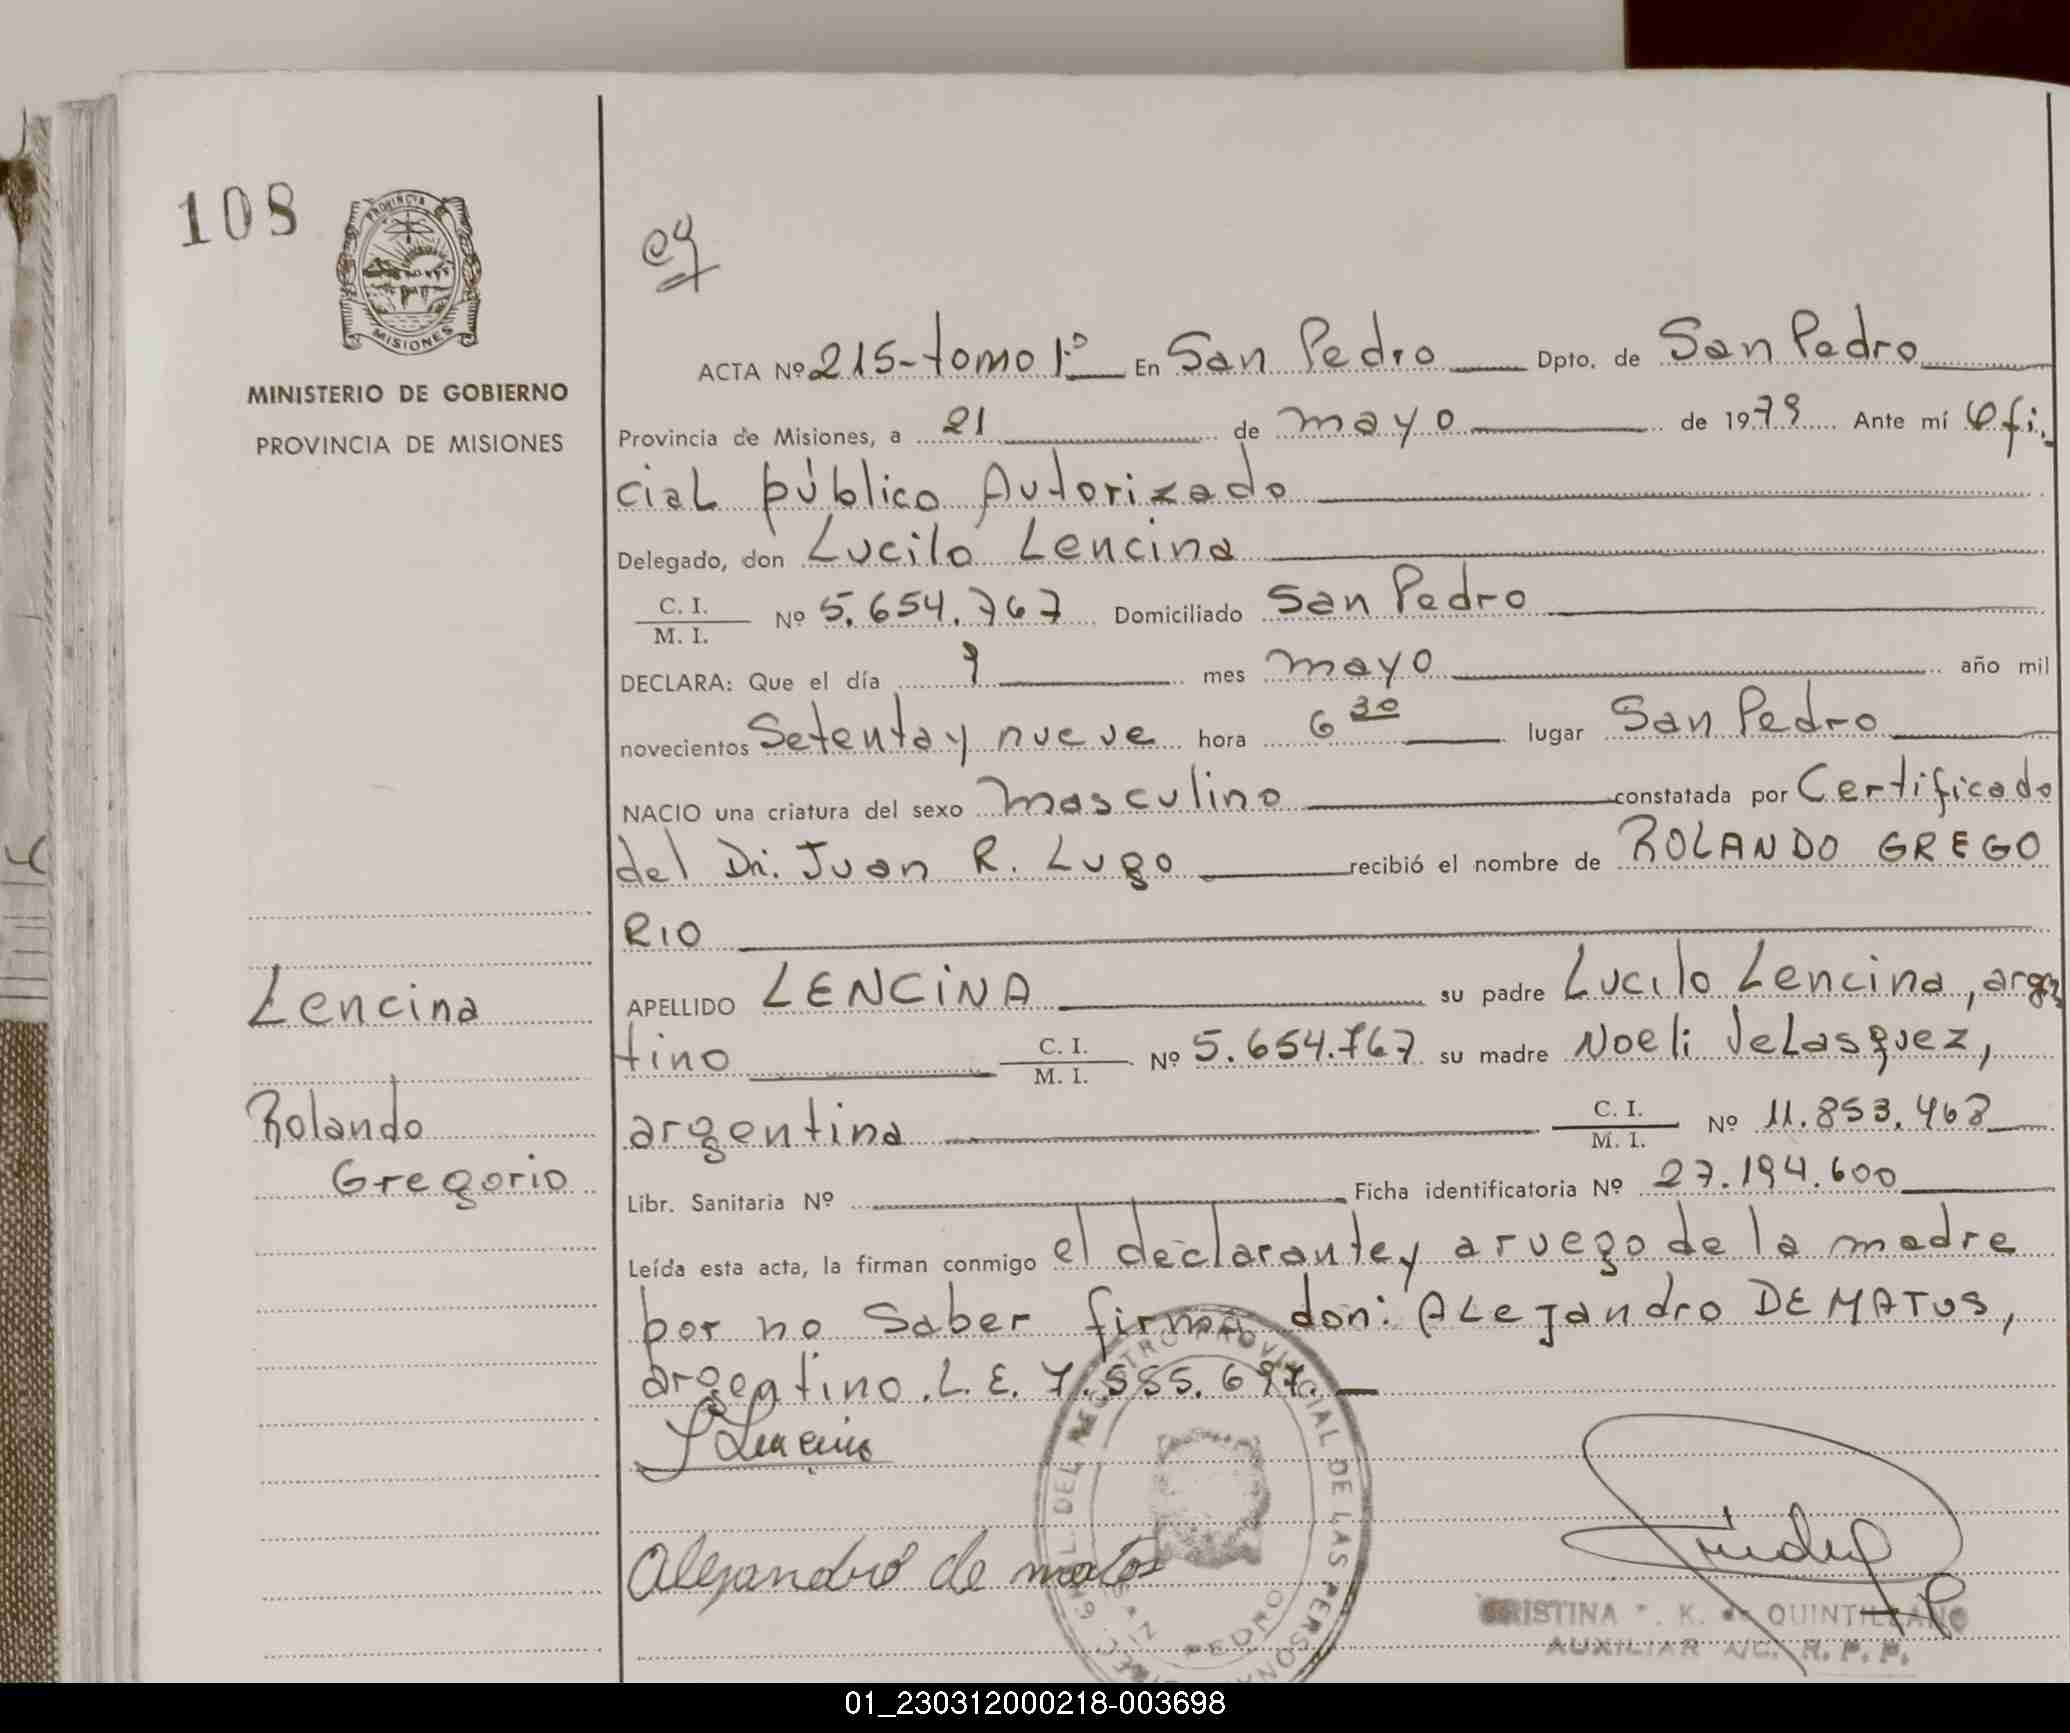 108
PROVINCIA DE
MISIONES
MINISTERIO DE GOBIERNO
PROVINCIA DE MISIONES
Lencina
Rolando
Gregorio
ACTA Nº 215-tomo 1º En San Pedro Dpto. de San Pedro
Provincia de Misiones, a 21 de mayo de 1979 Ante mí Ofi-
cial público Autorizado
Delegado, don Lucilo Lencina
C. I.
M. I. Nº 5.654.767 Domiciliado San Pedro
DECLARA: Que el día 9 mes mayo año mil
novecientos Setenta y nueve hora 6 30 lugar San Pedro
NACIO una criatura del sexo masculino constatada por Certificado
del Dr. Juan R. Lugo recibió el nombre de ROLANDO GREGO
RIO
APELLIDO LENCINA su padre Lucilo Lencina, argen
tino C. I. M. I. Nº 5.654.767 su madre Noeli Velasquez,
argentina C. I. M. I. Nº 11.853.468
Libr. Sanitaria Nº Ficha identificatoria Nº 27.194.600
Leída esta acta, la firman conmigo el declarante y a ruego de la madre
por no saber firmar don: Alejandro DE MATOS,
argentino. L. E. 7.555.697.
L Lencina
Alejandro de matos
DEL REGISTRO PROVINCIAL DE LAS PERSONAS
PEDRO
CRISTINA K. de QUINTILIANO
AUXILIAR A/C. R. P. P.
01_230312000218-003698